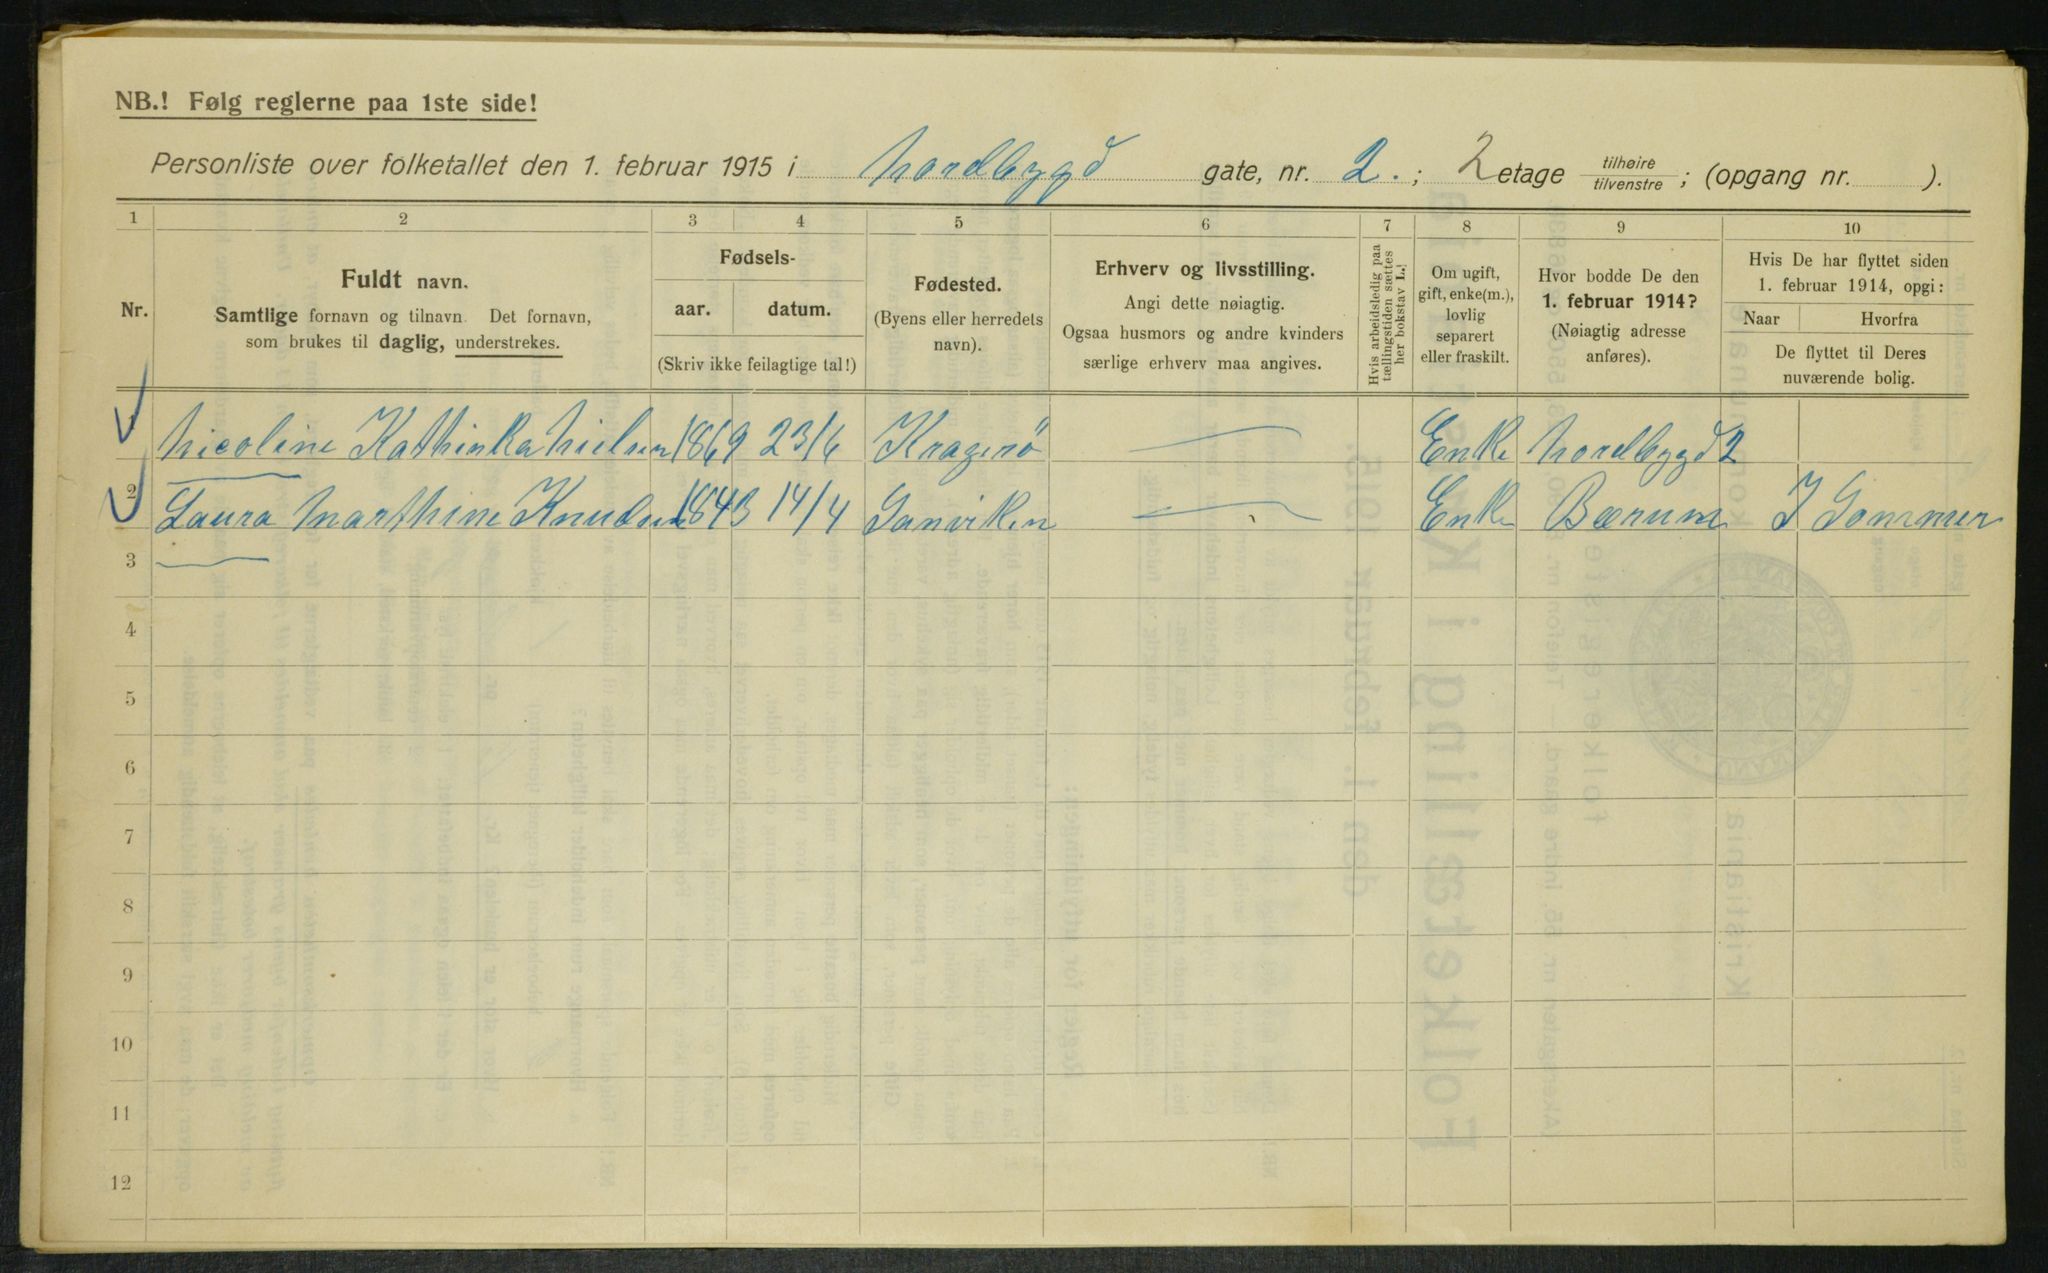 NB.! Følg reglerne paa 1ste side!
Personliste over folketallet den 1. februar 1915 i Nordbygd gate, nr. 2. ; 2 etage tilhøire tilvenstre ; (opgang nr. ).
1 2 3 4 5 6 7 8 9 10
Nr.
Fuldt navn.
Samtlige fornavn og tilnavn. Det fornavn,
som brukes til daglig, understrekes.
Fødsels-
aar. datum.
(Skriv ikke feilagtige tal!)
Fødested.
(Byens eller herredets
navn).
Erhverv og livsstilling.
Angi dette nøiagtig.
Ogsaa husmors og andre kvinders
særlige erhverv maa angives.
Hvis arbeidsledig paa
tællingstiden sættes
her bokstav L.!
Om ugift,
gift, enke(m.),
lovlig
separert
eller fraskilt.
Hvor bodde De den
1. februar 1914?
(Nøiagtig adresse
anføres).
Hvis De har flyttet siden
1. februar 1914, opgi:
Naar Hvorfra
De flyttet til Deres
nuværende bolig.
1 Nicoline Kathinka Nielsen 1869 23/6 Kragerö Enke Nordbygd 2
2 Laura Marthine Knudsen 1843 14/4 Sanviken Enke Bærum I Sommer
3
4
5
6
7
8
9
10
11
12